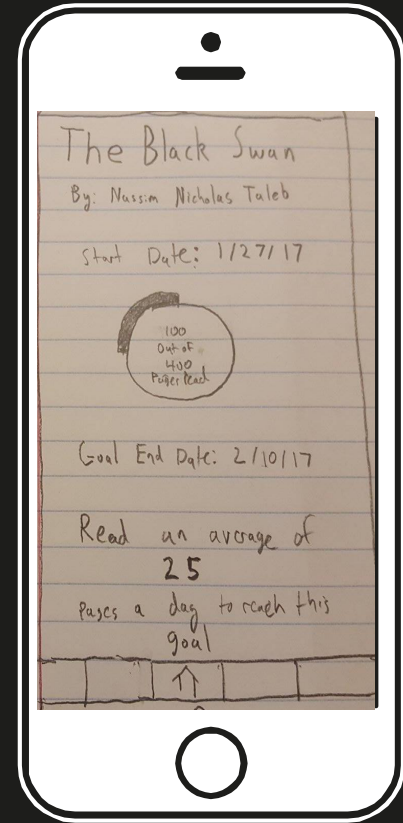 The Black Swan
By: Nassim Nicholas Taleb
Start Date: 1/27/17
100
Out of
400
Pages Read
Goal End Date: 2/10/17
Read an average of
25
pages a day to reach this
goal